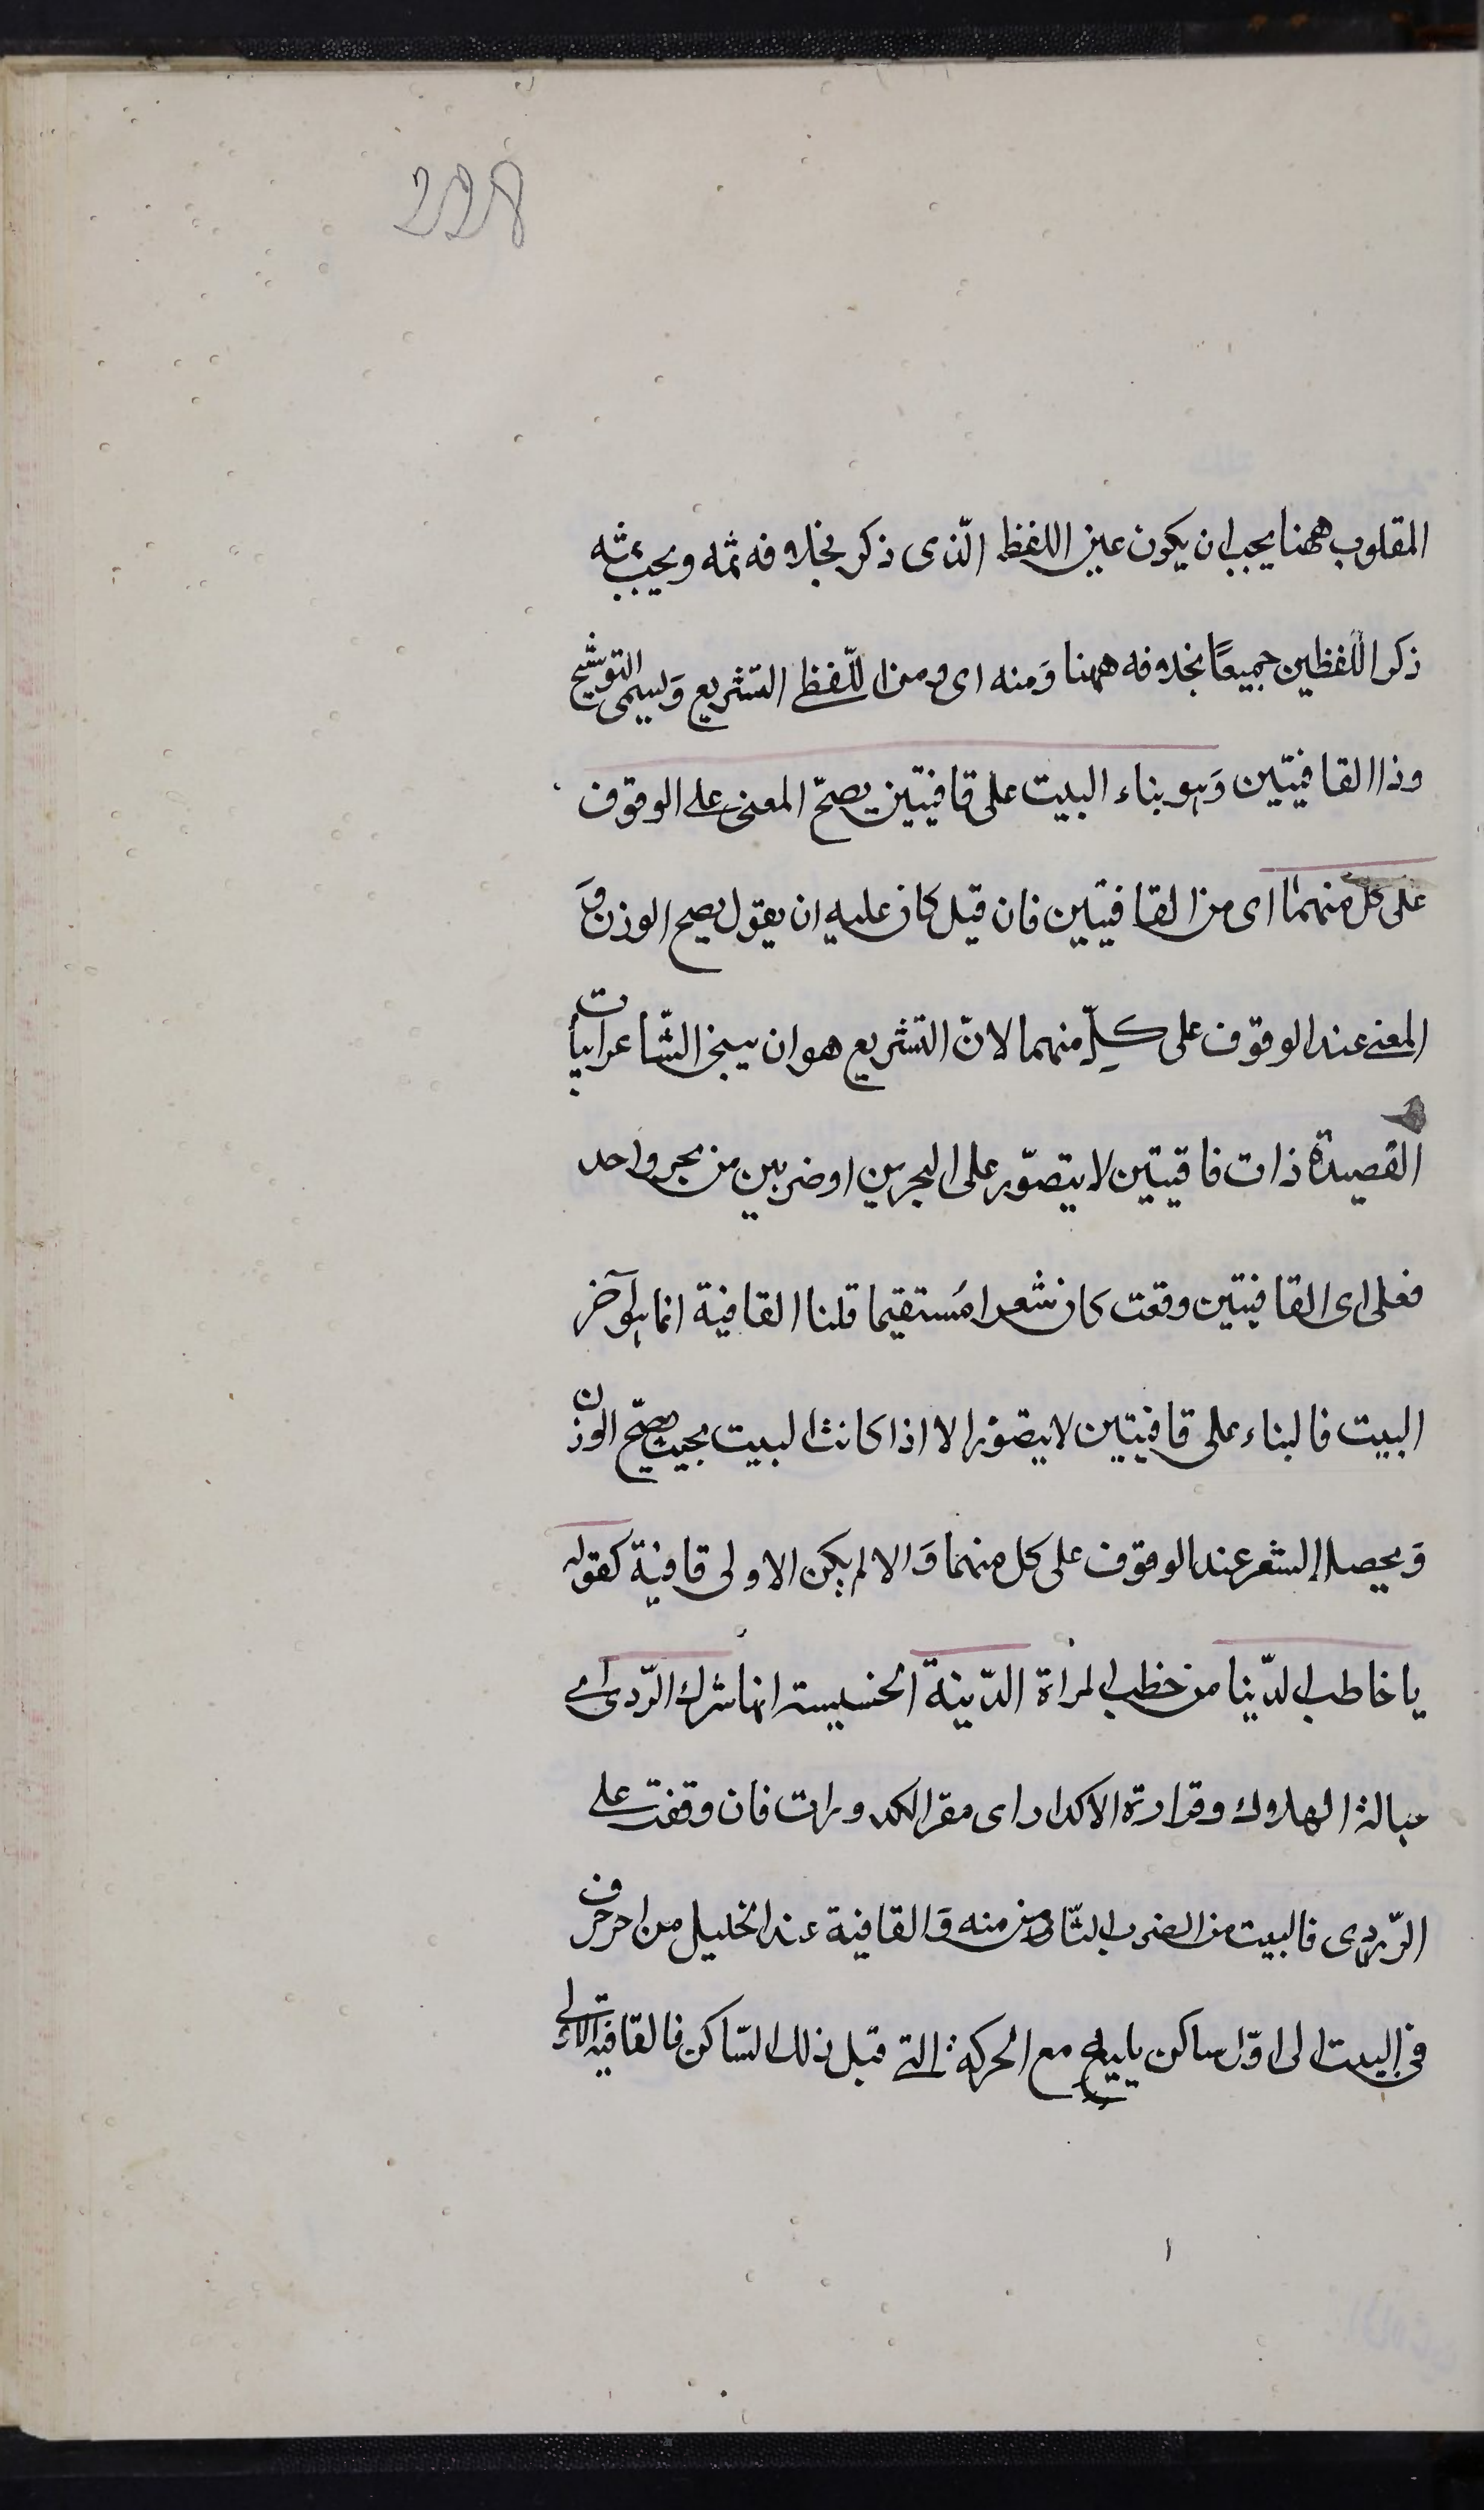 228
المقلوب ههنا يجب ان يكون عين اللفظ الّذى ذكر بخلافه ثمه ويجب ثمه
ذكر اللّفظين جميعًا بخلافه ههنا وَمنه اى ومن اللّفظ التشريع وَيسمى التوشيح
وذا القافيتين وَهو بناء البيت على قافيتين يصحّ المعنى على الوقوف
على كل منهما اى من القافيتين فان قيل كان عليه ان يقول يصح الوزن وَ
المعنى عند الوقوف على كلّ منهما لانّ التشريع هو ان يبنى الشّاعر ابيات
القصيدة ذات قافيتين لا يتصوّر على البحرين او ضربين من بحر واحد
فعلى اى القافيتين وقعت كان شعرا مُستقيما قلنا القافية انما هو آخر
البيت فالبناء على قافيتين لا يتصوّر الا اذا كانت البيت بحيث يصحّ الوزن
وَيحصل الشعر عند الوقوف على كل منهما وَالا لم يكن الاولى قافية كقوله
يا خاطب الدّنيا من خطب المراة الدّنية الخسيسة انها شرك الرّدى اى
حبالة الهلاك وقرارة الاكدار اى مقر الكدورات فان وقفت على
الرّدى فالبيت من الضرب الثّامن منه وَالقافية عند الخليل من اخر حرف
فى البيت الى اوّل ساكن يليه مع الحركة التى قبل ذلك السّاكن فالقافية الاولى